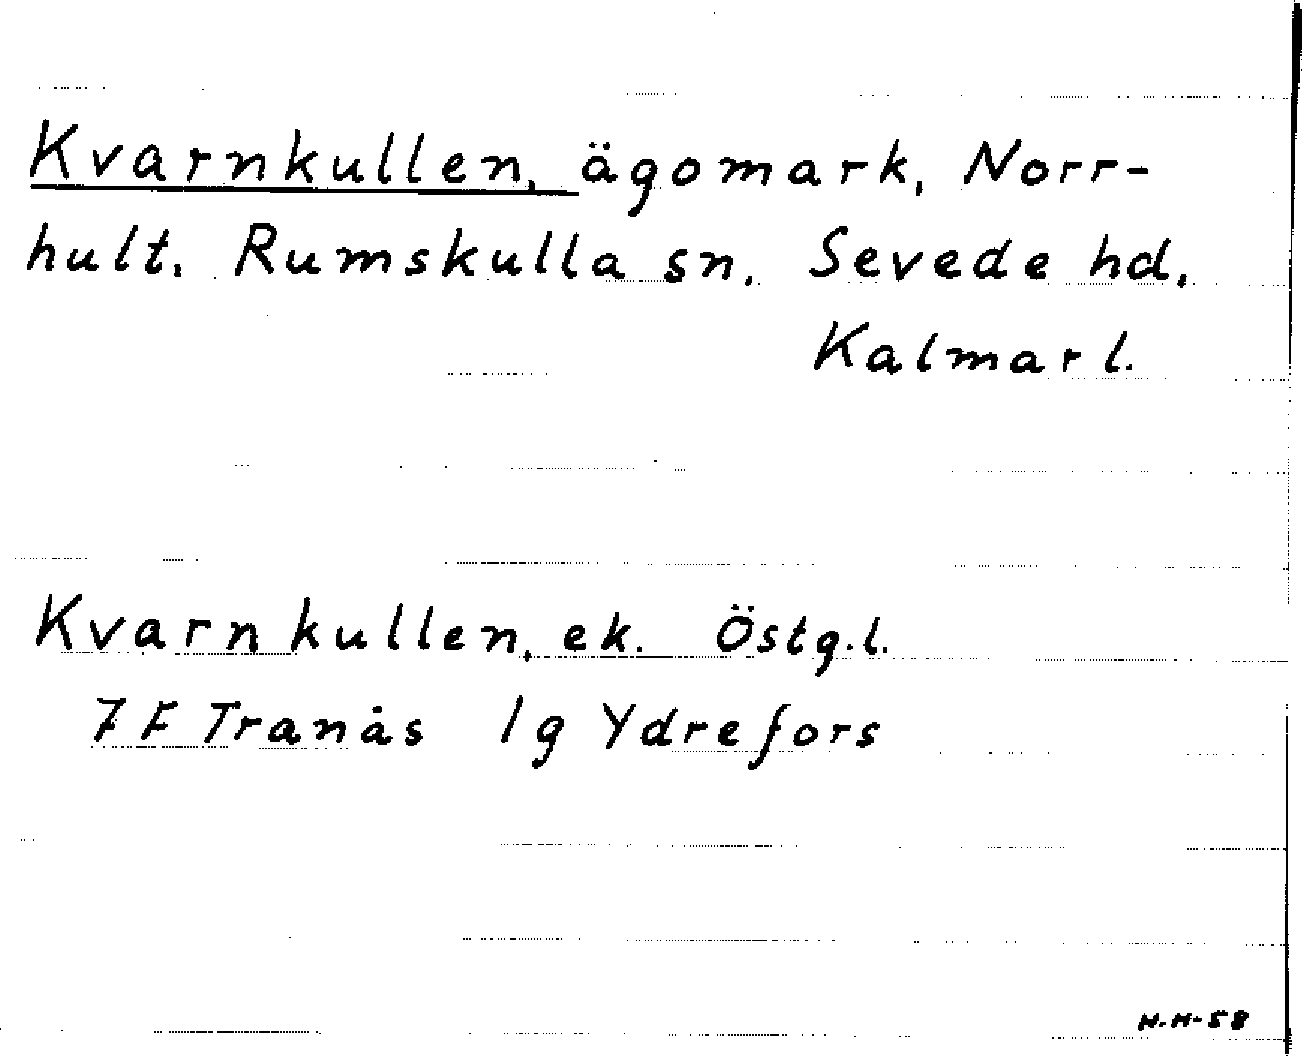 Kvarnkullen, ägomark, Norr-
hult. Rumskulla sn. Sevede hd.
Kalmar l.
Kvarnkullen, ek. Östg.l.
7 F Tranås 1g Ydrefors
N.H-58